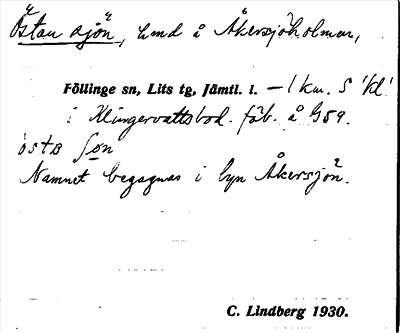 Östan sjön, lund å Åkersjöholmen,
Föllinge sn, Lits tg, Jämtl. l. — 1 km. S 'kl'
i Klingervattsbod. fäb. å G59.
östa
Namnet begagnas i byn Åkersjön.
C. Lindberg 1930.